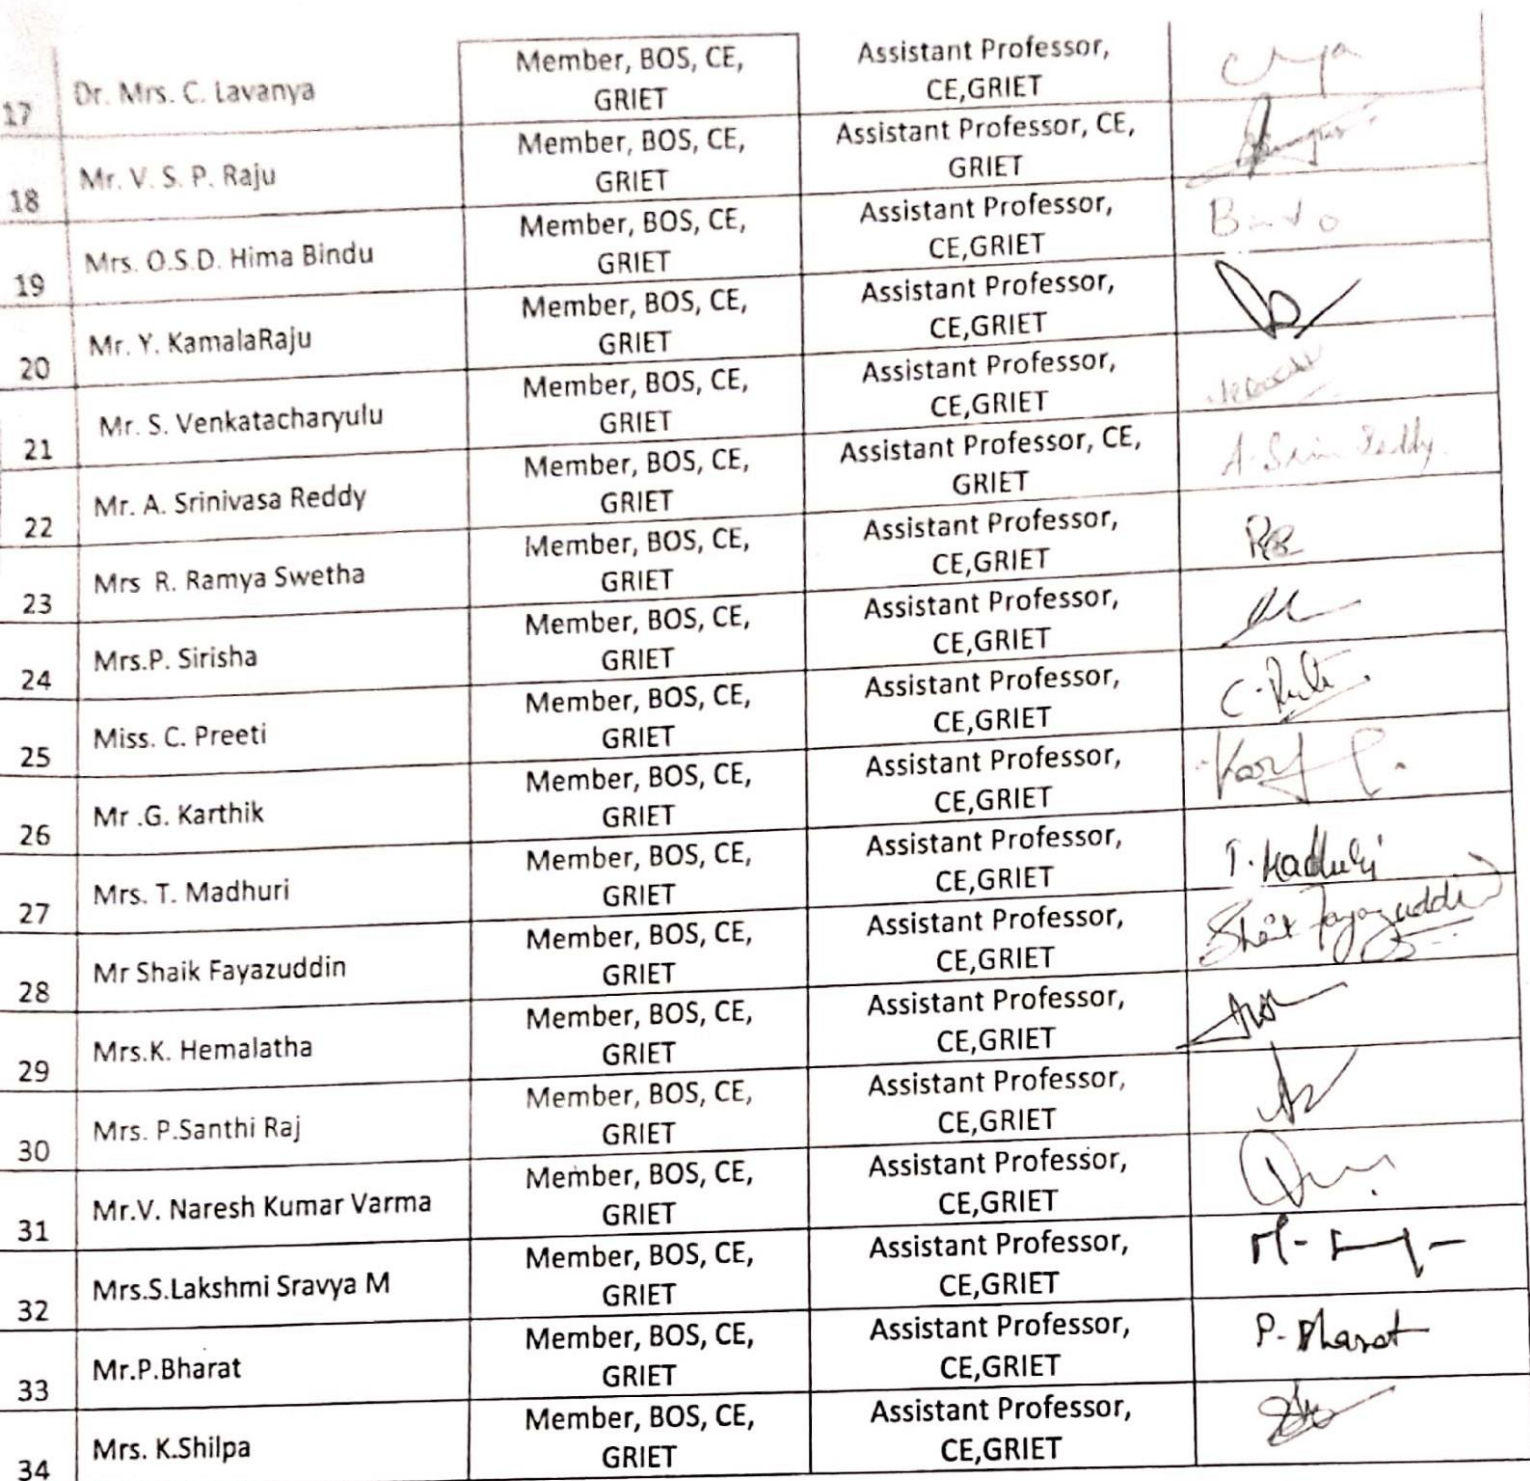 17 Dr. Mrs. C. Lavanya Member, BOS, CE, GRIET Assistant Professor, CE,GRIET
18 Mr. V. S. P. Raju Member, BOS, CE, GRIET Assistant Professor, CE, GRIET
19 Mrs. O.S.D. Hima Bindu Member, BOS, CE, GRIET Assistant Professor, CE,GRIET
20 Mr. Y. KamalaRaju Member, BOS, CE, GRIET Assistant Professor, CE,GRIET
21 Mr. S. Venkatacharyulu Member, BOS, CE, GRIET Assistant Professor, CE,GRIET
22 Mr. A. Srinivasa Reddy Member, BOS, CE, GRIET Assistant Professor, CE, GRIET
23 Mrs R. Ramya Swetha Member, BOS, CE, GRIET Assistant Professor, CE,GRIET
24 Mrs.P. Sirisha Member, BOS, CE, GRIET Assistant Professor, CE,GRIET
25 Miss. C. Preeti Member, BOS, CE, GRIET Assistant Professor, CE,GRIET
26 Mr .G. Karthik Member, BOS, CE, GRIET Assistant Professor, CE,GRIET
27 Mrs. T. Madhuri Member, BOS, CE, GRIET Assistant Professor, CE,GRIET T. Madhuri
28 Mr Shaik Fayazuddin Member, BOS, CE, GRIET Assistant Professor, CE,GRIET Shaik Fayazuddin
29 Mrs.K. Hemalatha Member, BOS, CE, GRIET Assistant Professor, CE,GRIET
30 Mrs. P.Santhi Raj Member, BOS, CE, GRIET Assistant Professor, CE,GRIET
31 Mr.V. Naresh Kumar Varma Member, BOS, CE, GRIET Assistant Professor, CE,GRIET
32 Mrs.S.Lakshmi Sravya M Member, BOS, CE, GRIET Assistant Professor, CE,GRIET
33 Mr.P.Bharat Member, BOS, CE, GRIET Assistant Professor, CE,GRIET P. Bharat
34 Mrs. K.Shilpa Member, BOS, CE, GRIET Assistant Professor, CE,GRIET